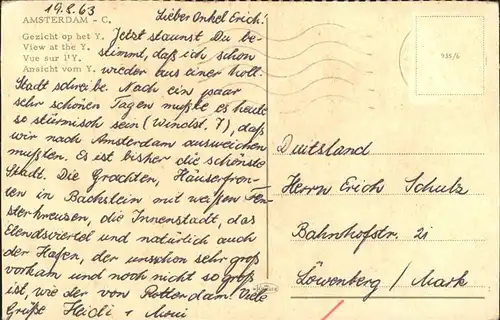 19.8.63
AMSTERDAM - C.
Lieber Onkel Erich!
Gezicht op het Y.
View at the Y.
Vue sur l'Y.
Ansicht vom Y.
Jetzt staunst Du be-
stimmt, daß ich schon
wieder aus einer holl.
Stadt schreibe. Nach ein paar
sehr schönen Tagen mußte es heute
so stürmisch sein (Windst. 7), daß
wir nach Amsterdam ausweichen
mußten. Es ist bisher die schönste
Stadt. Die Grachten, Häuserfron-
ten in Backstein mit weißen Fen-
sterkreuzen, die Innenstadt, das
Elendsviertel und natürlich auch
der Hafen, der uns schon sehr groß
vorkam und noch nicht so groß
ist, wie der von Rotterdam. Viele
Grüße Heidi +
935/6
Duitsland
Herrn Erich Schulz
Bahnhofstr. 21
Löwenberg / Mark